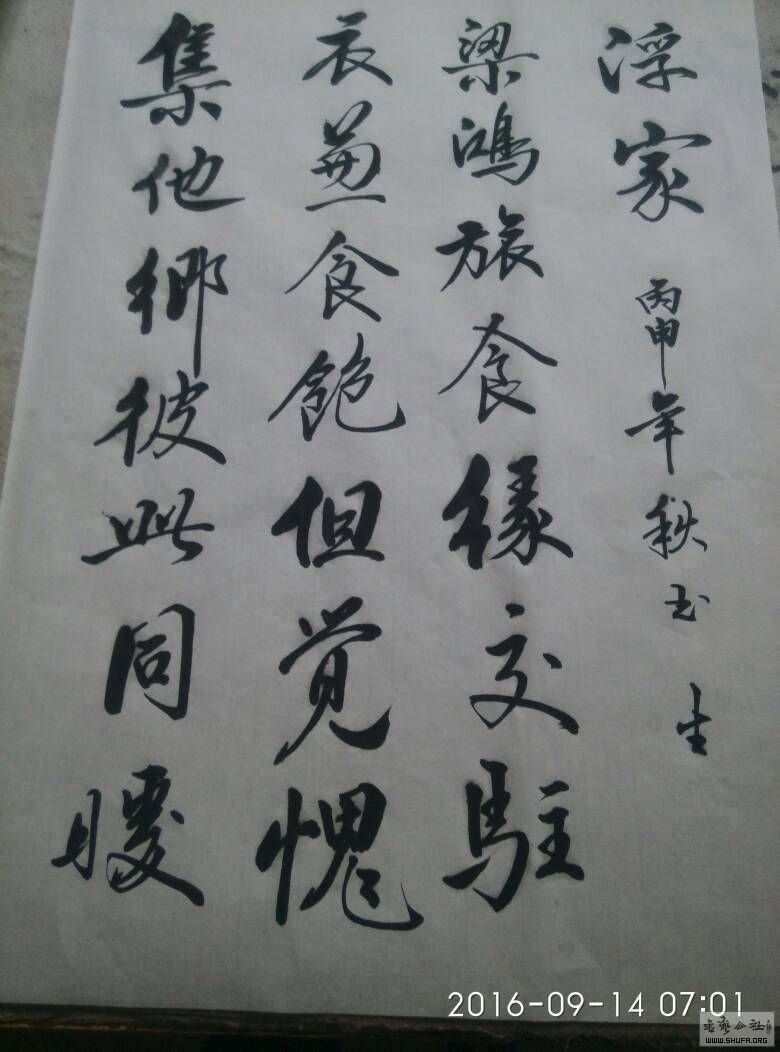 集他鄉彼此同暖
衣兼食飽但觉愧
梁鴻旅食緣交駐
浮家
丙申年秋玉生
2016-09-14 07:01
書藝公社
WWW.SHUFA.ORG